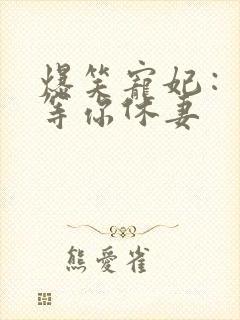 爆笑寵妃：
等你休妻
熊愛雀